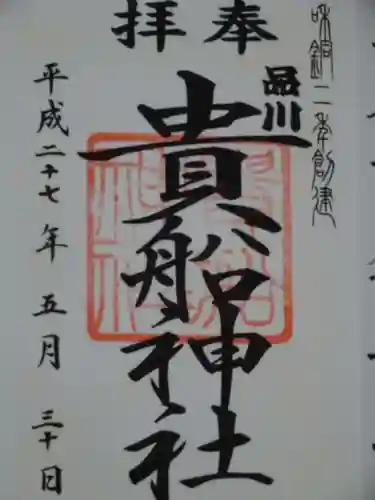 奉拝
和銅二年創建
品川
貴船神社
平成二十七年五月三十日